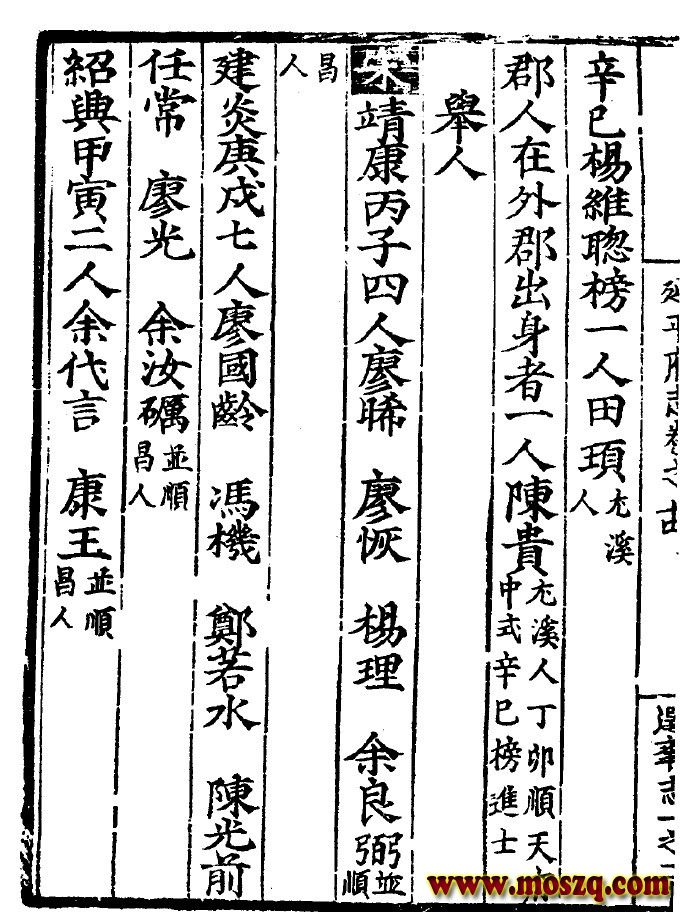 延平府志卷之十
選舉志一之
辛巳楊維聰榜一人田頊尤溪人
郡人在外郡出身者一人陳貴尤溪人丁卯順天中式辛巳榜進士
舉人
宋靖康丙子四人廖晞 廖恢 楊理 余良弼並順昌人
建炎庚戌七人廖國齡 馮機 鄭若水 陳光前
任常 廖光 余汝礪並順昌人
紹興甲寅二人余代言 康王並順昌人
www.moszq.com